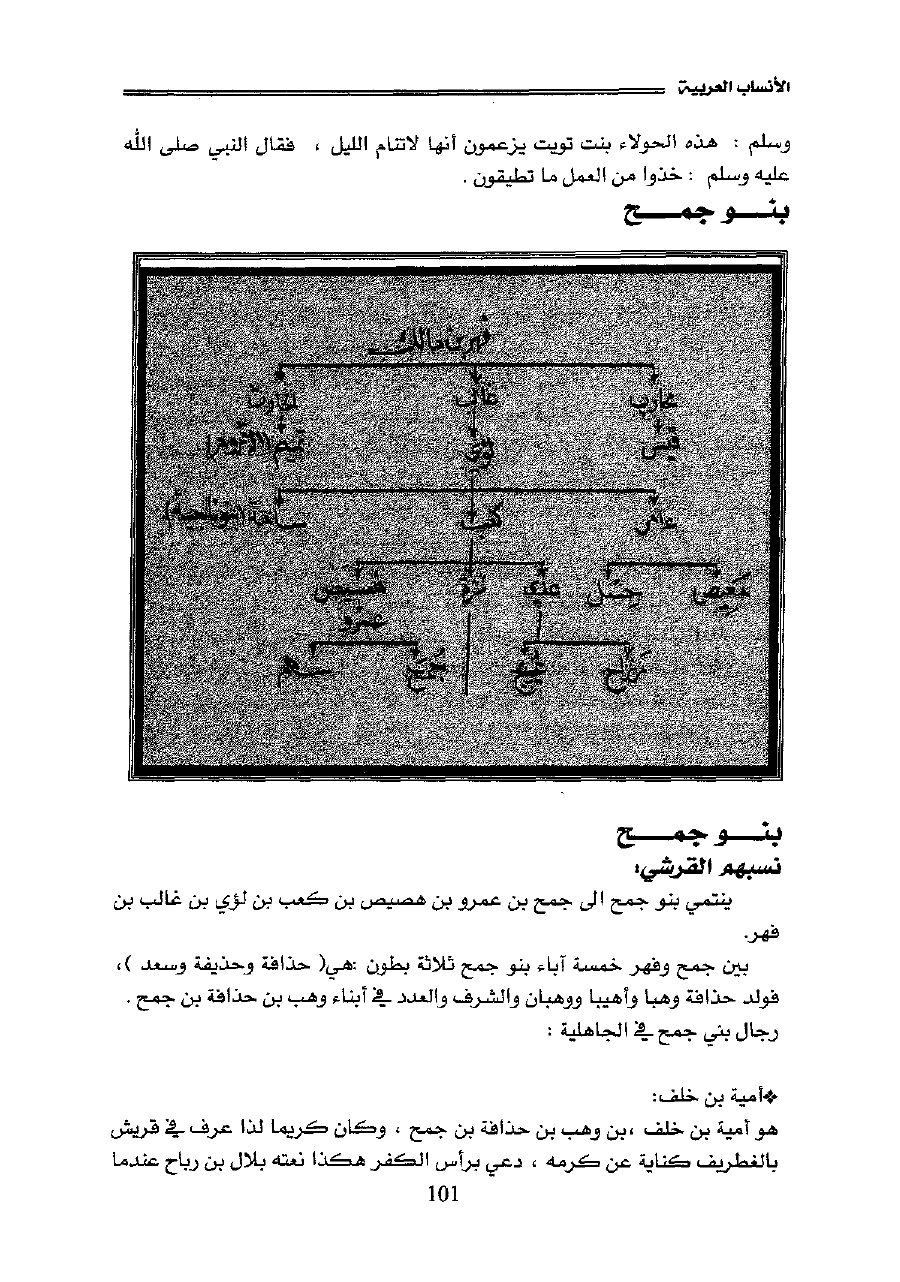 الأنساب العربية
وسلم : هذه الحولاء بنت تويت يزعمون أنها لاتنام الليل ، فقال النبي صلى الله
عليه وسلم : خذوا من العمل ما تطيقون .
بنـــو جمـــح
فهر بن مالك
محارب غالب الحارث
قيس لؤي تيم (الأدرم)
عامر كعب سامة (بنو ناجية)
معيص حسل عدي مرة هصيص
عمرو
رزاح جمح سهم
بنـــو جمـــح
نسبهم القرشي:
ينتمي بنو جمح الى جمح بن عمرو بن هصيص بن كعب بن لؤي بن غالب بن
فهر.
بين جمح وفهر خمسة آباء بنو جمح ثلاثة بطون :هي( حذافة وحذيفة وسعد )،
فولد حذافة وهبا وأهيبا ووهبان والشرف والعدد في أبناء وهب بن حذافة بن جمح .
رجال بني جمح في الجاهلية :
❖أمية بن خلف:
هو أمية بن خلف ،بن وهب بن حذافة بن جمح ، وكان كريما لذا عرف في قريش
بالغطريف كناية عن كرمه ، دعي برأس الكفر هكذا نعته بلال بن رباح عندما
101